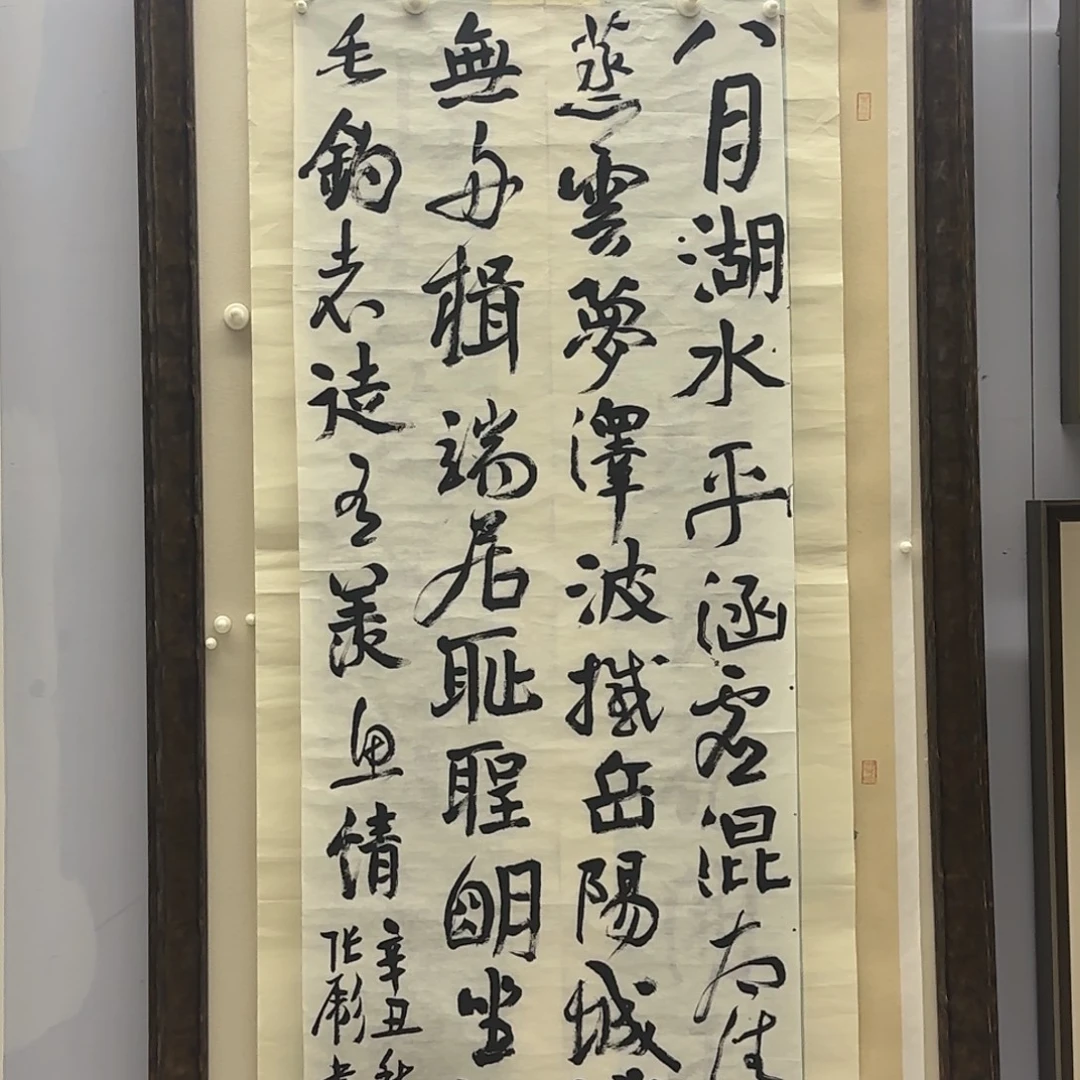 八月湖水平涵虚混太清
蒸雲夢澤波撼岳陽城
無舟楫端居耻聖明坐
垂釣者徒有羨魚情
辛丑秋